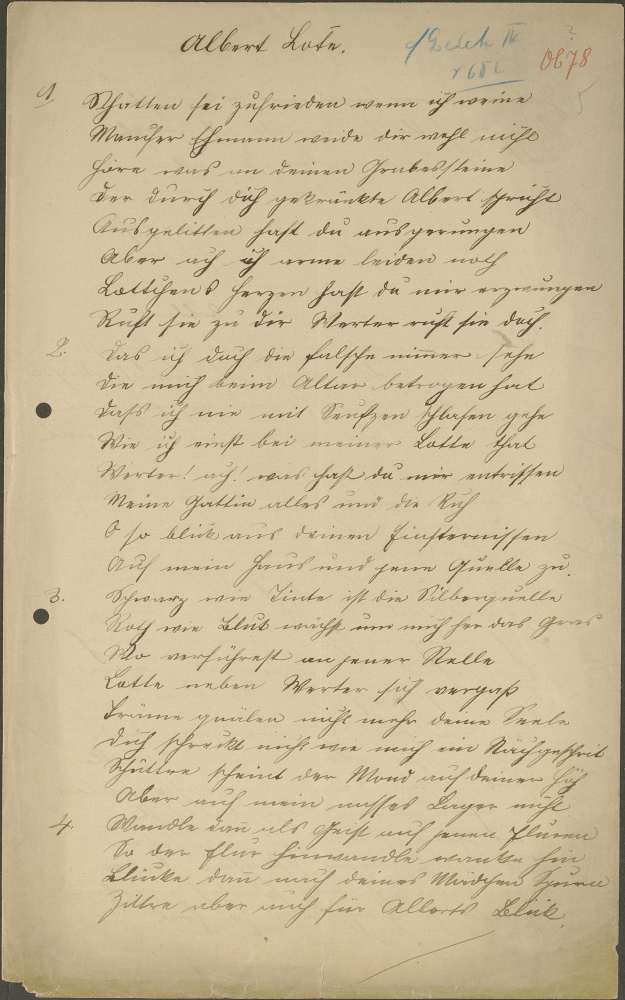 Albert Lote.
f Gesch IV
r 651
?
0678
1. Schatten sei zufrieden wenn ich weine
Mancher Ehmann weide dir wohl nicht
Höre was an deinen Grabessteine
Der durch dich gekränkte Albert spricht
Ausgelitten hast du ausgerungen
Aber ach ich arme leiden noch
Lottchens Herzen hast du mir erzwungen
Ruft sie zu dir Werter ruft sie doch.
2. Das ich doch die falsche nimer sehe
Die mich beim Altar betrogen hat
Dass ich nie mit Seufzen schlafen gehe
Wie ich einst bei meiner Lotte that
Werter! ach! was hast du mir entrissen
Meine Gattin alles und die Ruh
O so blick aus deinen Finsternissen
Auf mein Haus und jene Quelle zu.
3. Schwarz wie Tinte ist die Silberquelle
Roth wie Blut wächst um mich her das Gras
Wo verführest an jener Stelle
Lotte neben Werter sich vergaß
Träume quälen nicht mehr deine Seele
Dich schreckt nicht wie mich ein
scheint der Mond auf deiner
Aber auf mein nasses Lager nicht
4. Wandle dan als Geist auf jenen Fluren
So der Flur hinwandle wanke hin
Blicke dan nach deines Mädchen Spuren
Zittre aber auch für Alberts Blick.